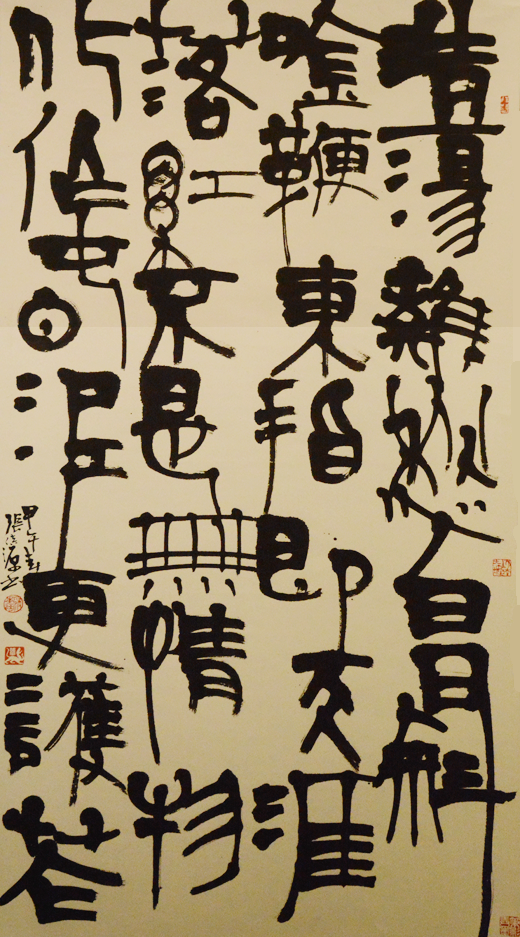 浩蕩離愁白日斜
唫鞭東指即天涯
落紅不是無情物
化作春泥更護花
甲午
張源